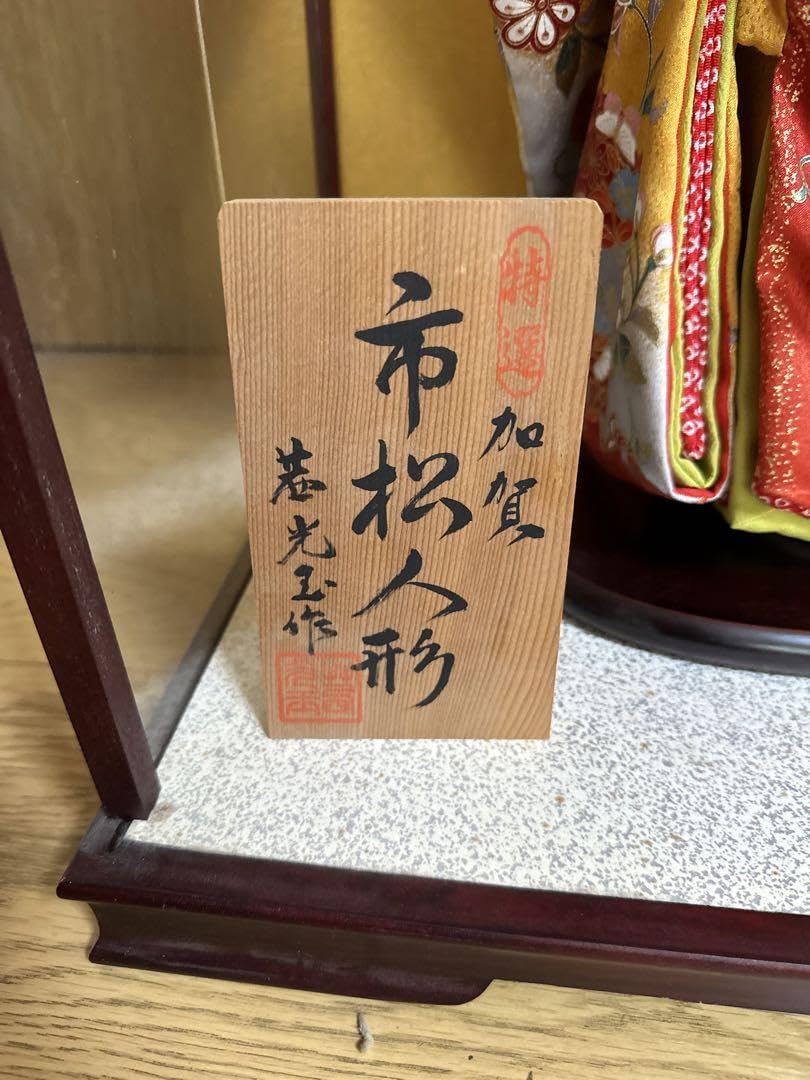 特選
加賀
市松人形
恭光玉作